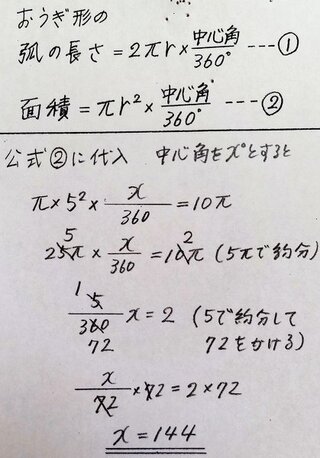 おうぎ形の
弧の長さ=2πr×中心角/360° ---①
面積=πr²×中心角/360° ---②
公式②に代入 中心角をx°とすると
π×5²×x/360=10π
5 2
25π×x/360=10π (5πで約分)
1
5/360 x=2 (5で約分して
72 72をかける)
x/72×72=2×72
x=144